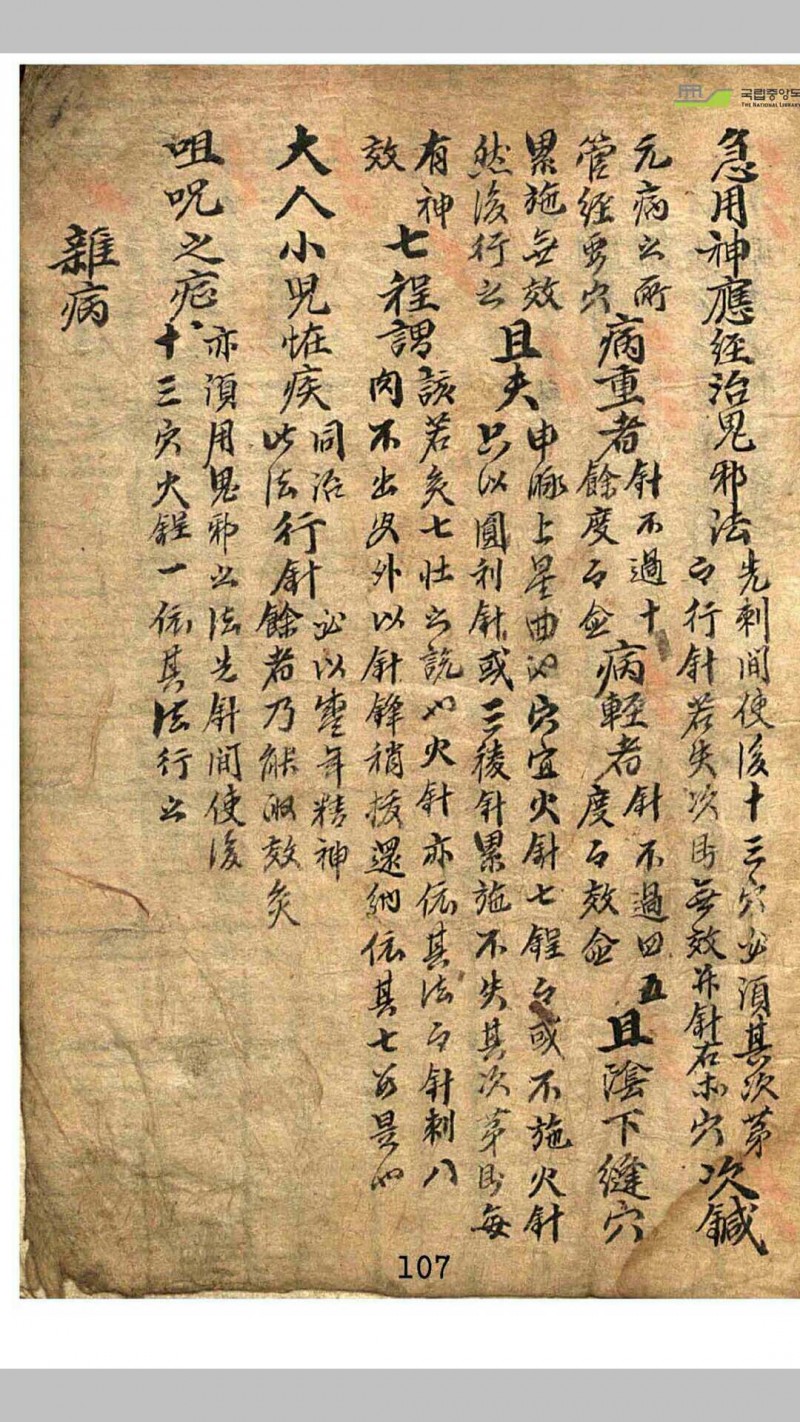 국립중앙도
THE NATIONAL LIBRARY
急用神應經治鬼邪法
先刺間使後十三穴必須其次第
行針若失次則無效并針右穴
次鍼
元病之所
管經要穴
病重者
針不過十
餘度
病輕者
針不過四五
度効
且陰下縫穴
累施無效
然後行之
且夫
申脉上星曲池穴宜火針七鋥或不施火針
只以圓利針或三稜針累施不失其次第則每
有神
效
七程謂
該若灸七壯之說火針亦依其法針刺八
肉不出皮外以針鋒稍拔還納依其七是
大人小兒恠疾
同治
此法
行針
必以壯年精神
餘者乃能取效灸
咀呪之症
亦須用鬼邪之法先針間使後
十三穴火鋥一依其法行之
雜病
107